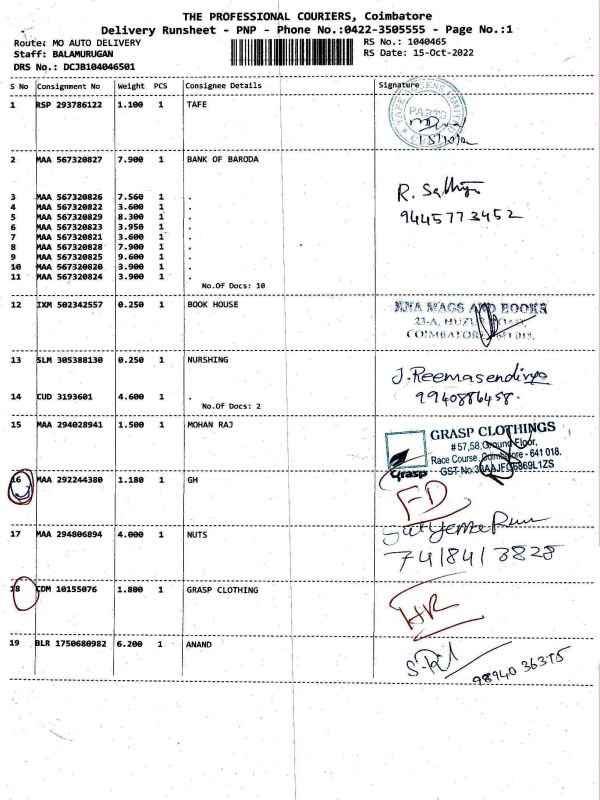 THE PROFESSIONAL COURIERS, Coimbatore
Delivery Runsheet - PNP - Phone No.:0422-3505555 - Page No.:1
Route: MO AUTO DELIVERY RS No.: 1040465
Staff: BALAMURUGAN RS Date: 15-Oct-2022
DRS No.: DCJB104046501
S No Consignment No Weight PCS Consignee Details Signature
1 RSP 293786122 1.100 1 TAFE
PARTS
2 MAA 567320827 7.900 1 BANK OF BARODA
R. Sathya
3 MAA 567320826 7.560 1 .
4 MAA 567320822 3.600 1 .
9445773452
5 MAA 567320829 8.300 1 .
6 MAA 567320823 3.950 1 .
7 MAA 567320821 3.600 1 .
8 MAA 567320828 7.900 1 .
9 MAA 567320825 9.600 1 .
10 MAA 567320820 3.900 1 .
11 MAA 567320824 3.900 1 .
No.Of Docs: 10
12 IXM 502342557 0.250 1 BOOK HOUSE
MAGS AND BOOKS
23-A, HUZUR ROAD,
COIMBATORE
13 SLM 305388130 0.250 1 NURSHING
J. Reemasendivya
14 CUD 3193601 4.600 1 .
9940886458.
No.Of Docs: 2
15 MAA 294028941 1.500 1 MOHAN RAJ
GRASP CLOTHINGS
#57,58,Ground Floor,
Race Course, Coimbatore - 641 018.
Grasp GST No:
16 MAA 292244380 1.180 1 GH
FD
17 MAA 294806894 4.000 1 NUTS
7418413828
18 CDM 10155076 1.800 1 GRASP CLOTHING
HR
19 BLR 1750680982 6.200 1 ANAND
98940 36375